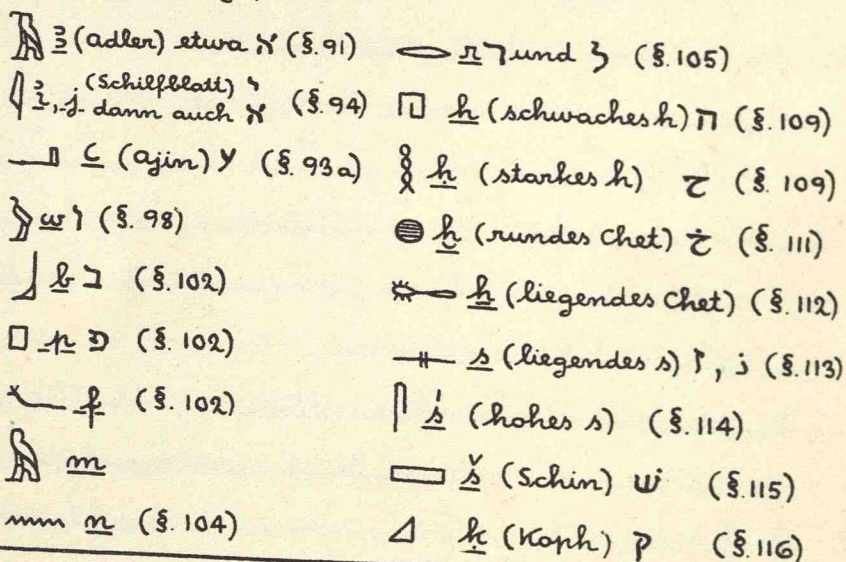 𓄿 ꜣ (Adler) etwa א (§. 91)
𓇋 ꜣ, j (Schilfblatt) י dann auch א (§. 94)
𓂝 ꜥ (Ajin) ע (§. 93a)
𓅱 w ו (§. 98)
𓃀 b ב (§. 102)
𓊪 p פ (§. 102)
𓆑 f (§. 102)
𓅓 m
𓈖 n (§. 104)
𓂋 r ר und ל (§. 105)
𓉔 h (schwaches h) ה (§. 109)
𓎛 ḥ (starkes h) ح (§. 109)
𓐍 ḫ (rundes Chet) خ (§. 111)
𓄡 ẖ (liegendes Chet) (§. 112)
𓊃 s (liegendes s) ז, ذ (§. 113)
𓋴 ś (hohes s) (§. 114)
𓈙 š (Schin) שׁ (§. 115)
𓈎 ḳ (Koph) ק (§. 116)